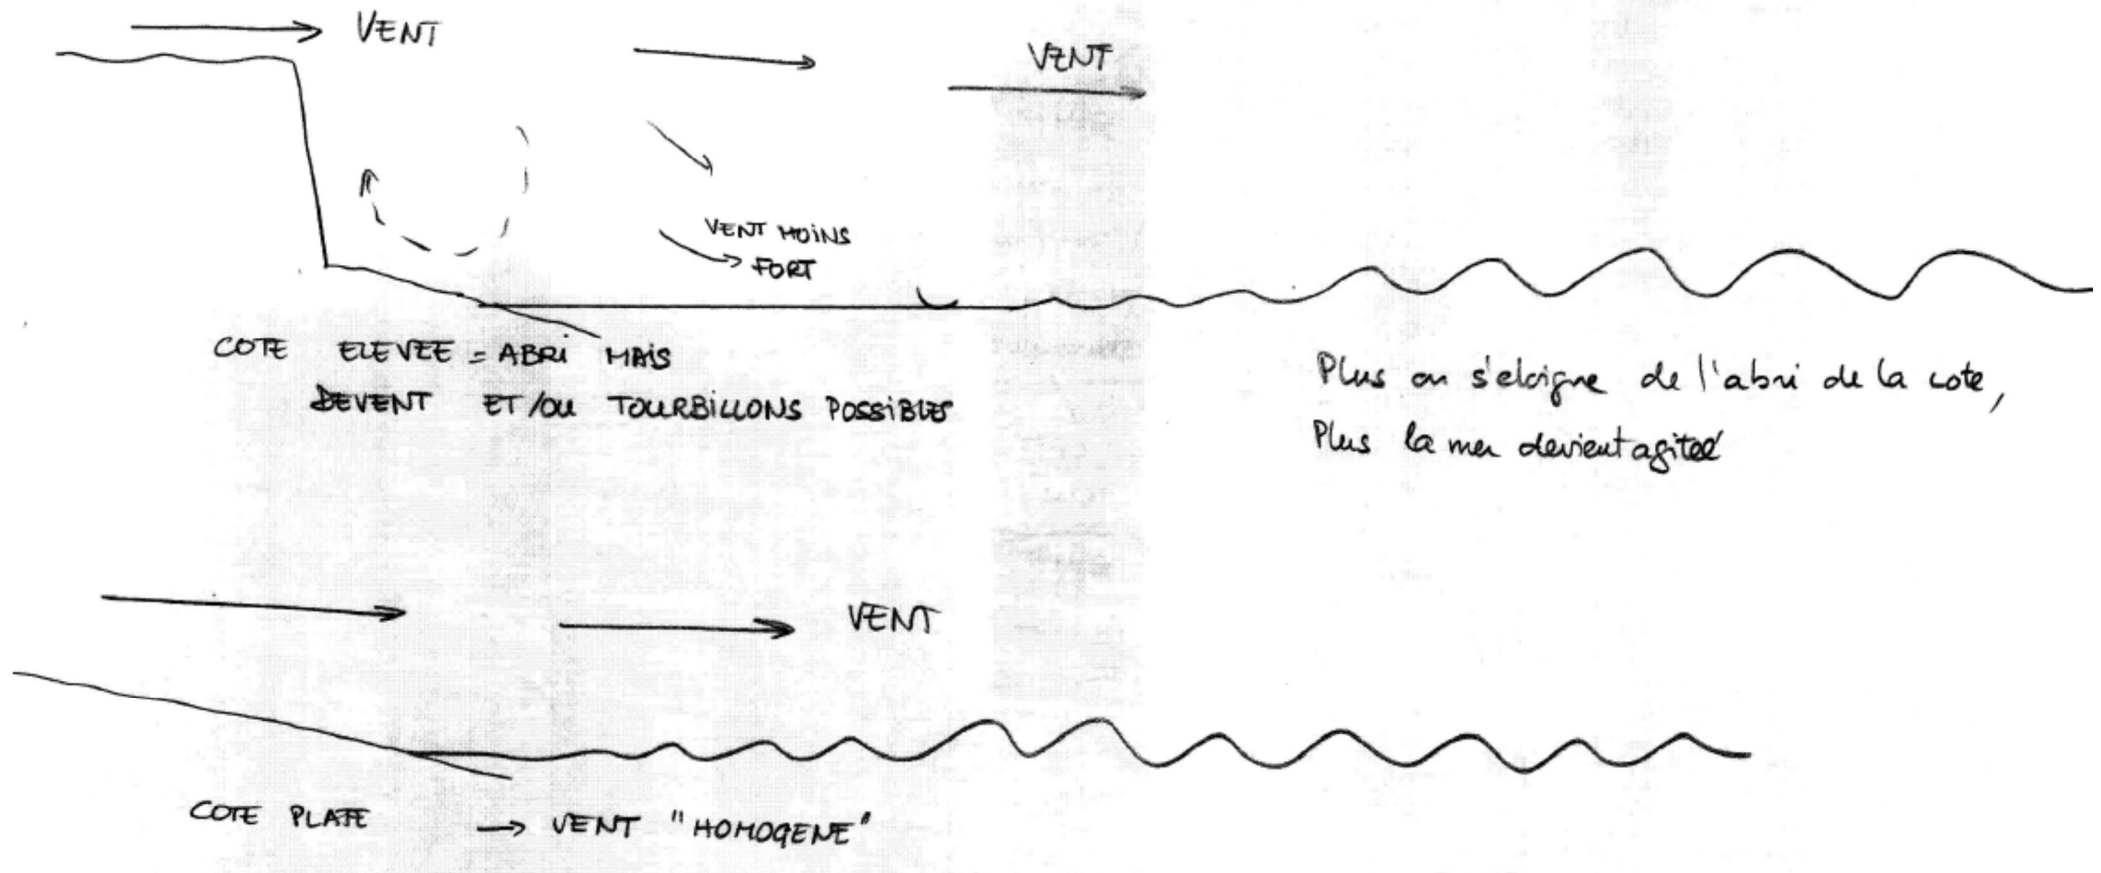 VENT
VENT
VENT MOINS
FORT
COTE ELEVEE = ABRI MAIS
DEVENT ET/OU TOURBILLONS POSSIBLES
Plus on s'eloigne de l'abri de la cote,
Plus la mer devient agitée
VENT
COTE PLATE → VENT "HOMOGENE"